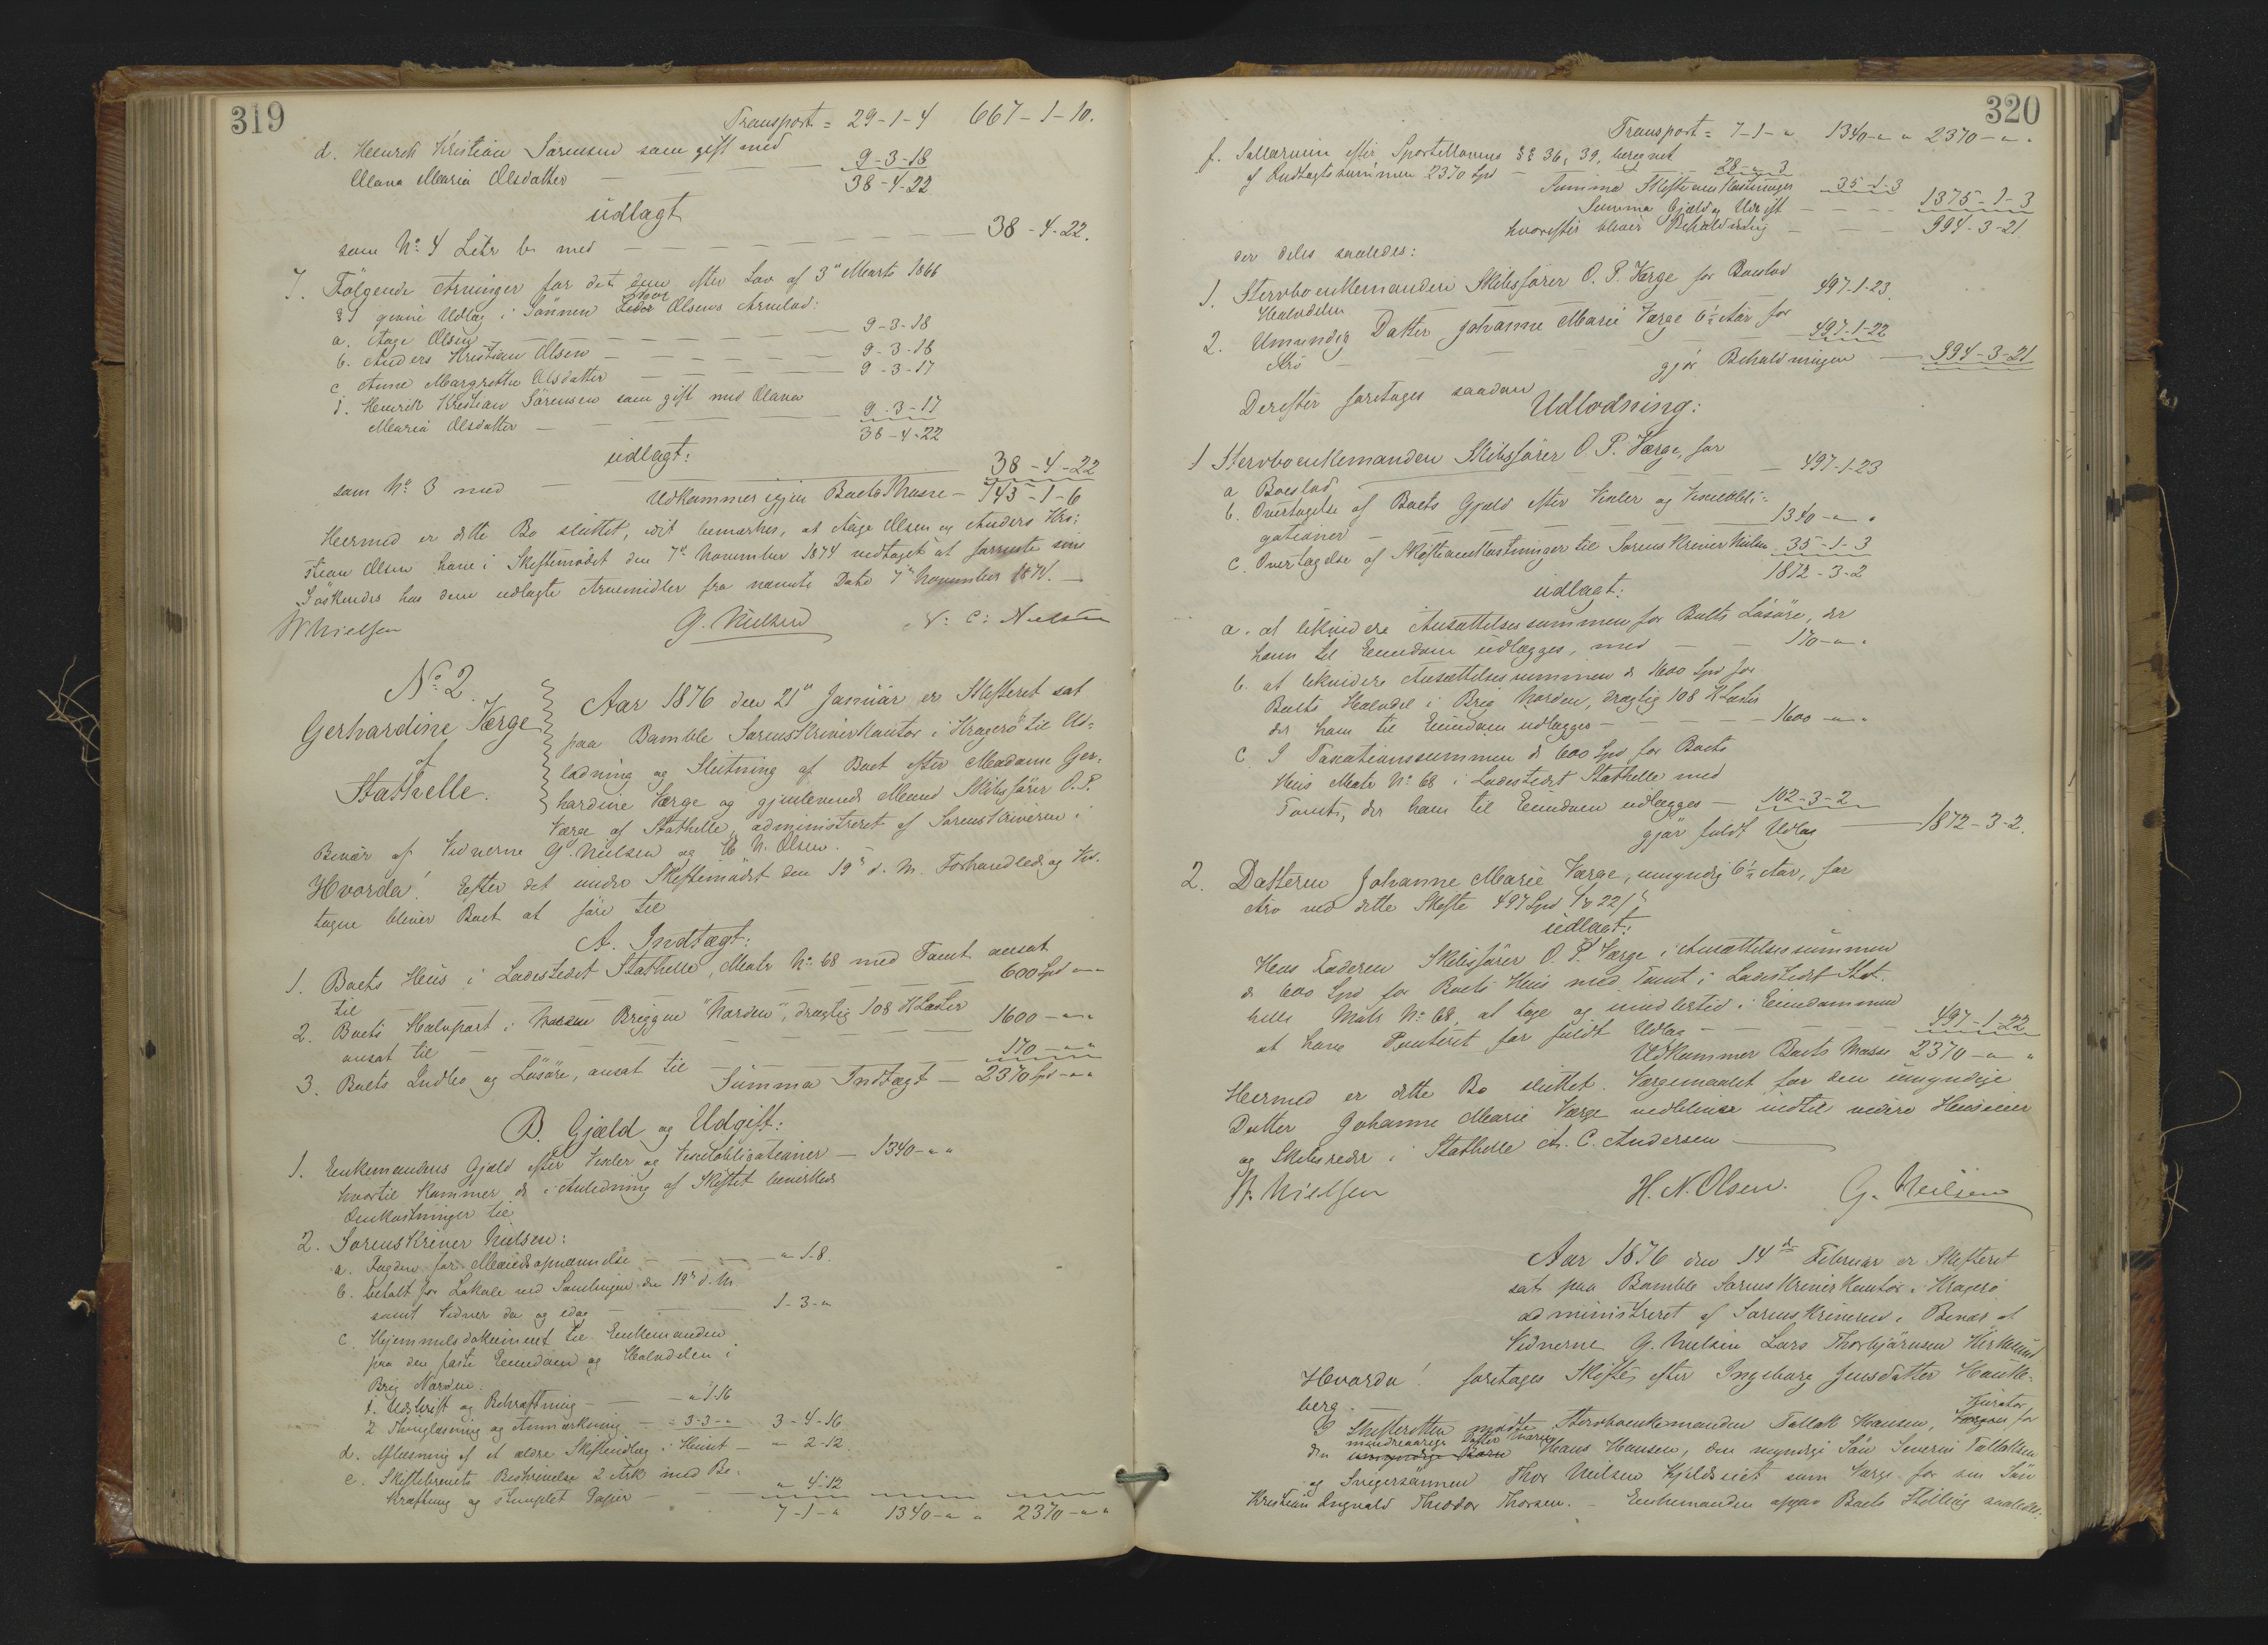 319
Transport = 29-1-4 667-1-10.
d. Henrik Kristian Sørensen som gift med
Olava Maria Olsdatter — — 9-3-18
38-4-22
udlagt
som No 4 Litr b med — — — 38-4-22.
7. Følgende Arvinger for det dem efter Lov af 3die Marts 1866
§ 1 givne Udlæg i Sønnen Thor Olsens Arvelod:
a. Aage Olsen — — — 9-3-18
b. Anders Kristian Olsen — — — 9-3-18
c. Anne Margrethe Olsdatter — — — 9-3-17
d. Henrik Kristian Sørensen som gift med Olava
Maria Olsdatter — — — 9-3-17
38-4-22
udlagt:
som No 3 med — — 38-4-22
Udkommer igjen Boets Masse — 743-1-6
Hermed er dette Bo sluttet, idet bemærkes, at Aage Olsen og Anders Kri-
stian Olsen have i Skiftemødet den 7de November 1874 vedtaget at forrente sine
Søskendes hos dem udlagte Arvemidler fra nævnte Dato 7de November 1874. —
W Nielsen G. Nielsen N. C. Nielsen
No 2.
Gerhardine Værge
af
Stathelle.
Aar 1876 den 21de Januar er Skifteret sat
paa Bamble Sorenskriverkontor i Kragerø til Ud-
lodning og Slutning af Boet efter Madam Ger-
hardine Værge og gjenlevende Mand Skibsfører O. P.
Værge af Stathelle, administreret af Sorenskriveren i
Overvær af Vidnerne G. Nielsen og H. N. Olsen.
Hvorda! Efter det under Skiftemødet den 19de d. M. Forhandlede og Ved-
tagne bliver Boet at føre til
A. Indtægt:
1. Boets Huus i Ladestedet Stathelle, Matr No 68 med Tomt ansat
til — — — 600 Spd " "
2. Boets Halvpart i Briggen "Norden", drægtig 108 K Læster
ansat til — — — 1600 - " "
3. Boets Indbo og Løsøre, ansat til — — 170 - " "
Summa Indtægt — 2370 Spd - " "
B. Gjæld og Udgift:
1. Enkemandens Gjæld efter Vexler og Vexelobligationer — 1340 - " "
hvortil kommer de i Anledning af Skiftet bevirkede
Omkostninger til
2. Sorenskriver Nielsen:
a. Fogden for Mændsopnævnelse — — " 1-8.
b. betalt for Lokale ved Samlingen den 19de d. M.
samt Vidner da og idag — — 1-3-"
c. Hjemmelsdokument til Enkemanden
paa den faste Eiendom og Halvdelen i
Brig Norden.
1. Udskrift og Bekræftning — — " 1 16
2 Thinglæsning og Anmærkning — 3-3-" 3-4-16
d. Aflæsning af et ældre Skifteudlæg i Huset — " 2-12.
e. Skiftebrevets Beskrivelse 2 Ark med Be-
kræftning og stemplet Papir — — " 4-12
7-1-" 1340 - " " 2370 - " "
320
Transport = 7-1-" 1340 - " " 2370 - " "
f. Sallarium efter Sportellovens §§ 36, 39, beregnet
af Indtægtssummen 2370 Spd — — 28-"-3
Summa Skifteomkostninger 35-1-3
Summa Gjæld og Udgift — — 1375-1-3
hvorefter bliver Beholdning — — 994-3-21
der deles saaledes:
1. Stervboenkemanden Skibsfører O. P. Værge for Boeslod
Halvdelen — — — 497-1-23.
2. Umyndig Datter Johanne Marie Værge 6½ Aar for
Arv — — — 497-1-22
gjør Beholdningen — 994-3-21
Derefter foretages saadan
Udlodning:
1 Stervboenkemanden Skibsfører O. P. Værge, for
a Boeslod — — — 497-1-23
b. Overtagelse af Boets Gjæld efter Vexler og Vexelobli-
gationer — — — 1340 - " "
c. Overtagelse af Skifteomkostninger til Sorenskriver Nielsen 35-1-3
1872-3-2
udlagt:
a. at likvidere Ansættelsessummen for Boets Løsøre, der
ham til Eiendom udlægges, med — — 170 - " "
b. at likvidere Ansættelsessummen d 1600 Spd for
Boets Halvdel i Brig Norden, drægtig 108 K Læster
der ham til Eiendom udlægges — — — 1600 - " "
c. I Taxationssummen d 600 Spd for Boets
Huus Matr No 68 i Ladestedet Stathelle med
Tomt, der ham til Eiendom udlægges — 102-3-2
gjør fuldt Udlæg — 1872-3-2.
2. Datteren Johanne Marie Værge, umyndig 6½ Aar, for
Arv ved dette Skifte 497 Spd 1 22
udlagt:
Hos Faderen Skibsfører O. P. Værge i Ansættelsessummen
d 600 Spd for Boets Huus med Tomt i Ladestedet Stat-
helle Matr No 68, at tage og imidlertid i Eiendommen
at have Panteret for fuldt Udlæg — — — 497-1-22
Udkommer Boets Masse 2370 - " "
Hermed er dette Bo sluttet. Værgemaalet for den umyndige
Datter Johanne Marie Værge vedbliver indtil videre Huuseier
og Skibsreder i Stathelle A. C. Andersen —
W. Nielsen H. N. Olsen. G. Nielsen
Aar 1876 den 14de Februar er Skifteret
sat paa Bamble Sorenskriverkontor i Kragerø
administreret af Sorenskriveren i Overvær af
Vidnerne G. Nielsen Lars Thorbjørnsen Kirkelund
Hvorda! foretages Skifte efter Ingeborg Jensdatter Hauke-
berg. —
I Skifteretten mødte Stervboenkemanden Tallak Hansen, Kurator for
den mindreaarige Datter Maren Hans Hansen, den myndige Søn Severin Tallaksen
og Svigersønnen Thor Nielsen Kjeldseiet som Værge for sin Søn
Kristian Ingvald Theodor Thorsen. — Enkemanden opgav Boets Stilling saaledes: